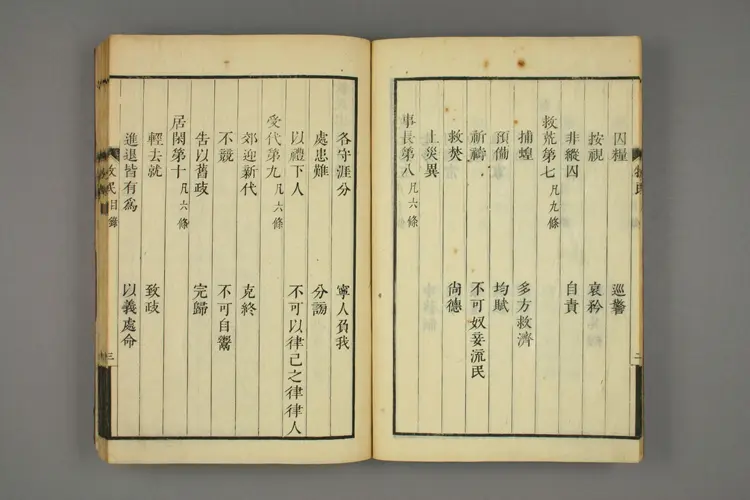 囚糧　巡警
按視　哀矜
非縱囚　自責
救荒第七 凡九條
捕蝗　多方救濟
預備　均賦
祈禱　不可奴妾流民
救焚　尙德
上災異
事長第八 凡六條
各守涯分　寧人負我
處患難　分謗
以禮下人　不可以律己之律律人
受代第九 凡六條
郊迎新代　克終
不競　不可自鬻
告以舊政　完歸
居閑第十 凡六條
輕去就　致政
進退皆有爲　以義處命
牧民目錄　三